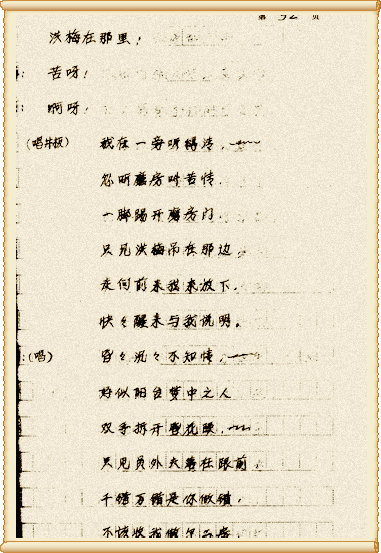 第 页
洪梅在那里，
: 苦呀！
: 啊呀！
(唱牛板) 我在一旁听得清，
忽听磨房叫苦情，
一脚踢开磨房门，
只见洪梅吊在那边，
走向前来我来放下，
快々醒来与我说明。
:(唱) 昏々沉々不知情，
好似阳台梦中之人
双手拆开 花眼，
只见员外夫妻在跟前，
千错万错是你做错，
不该将我做